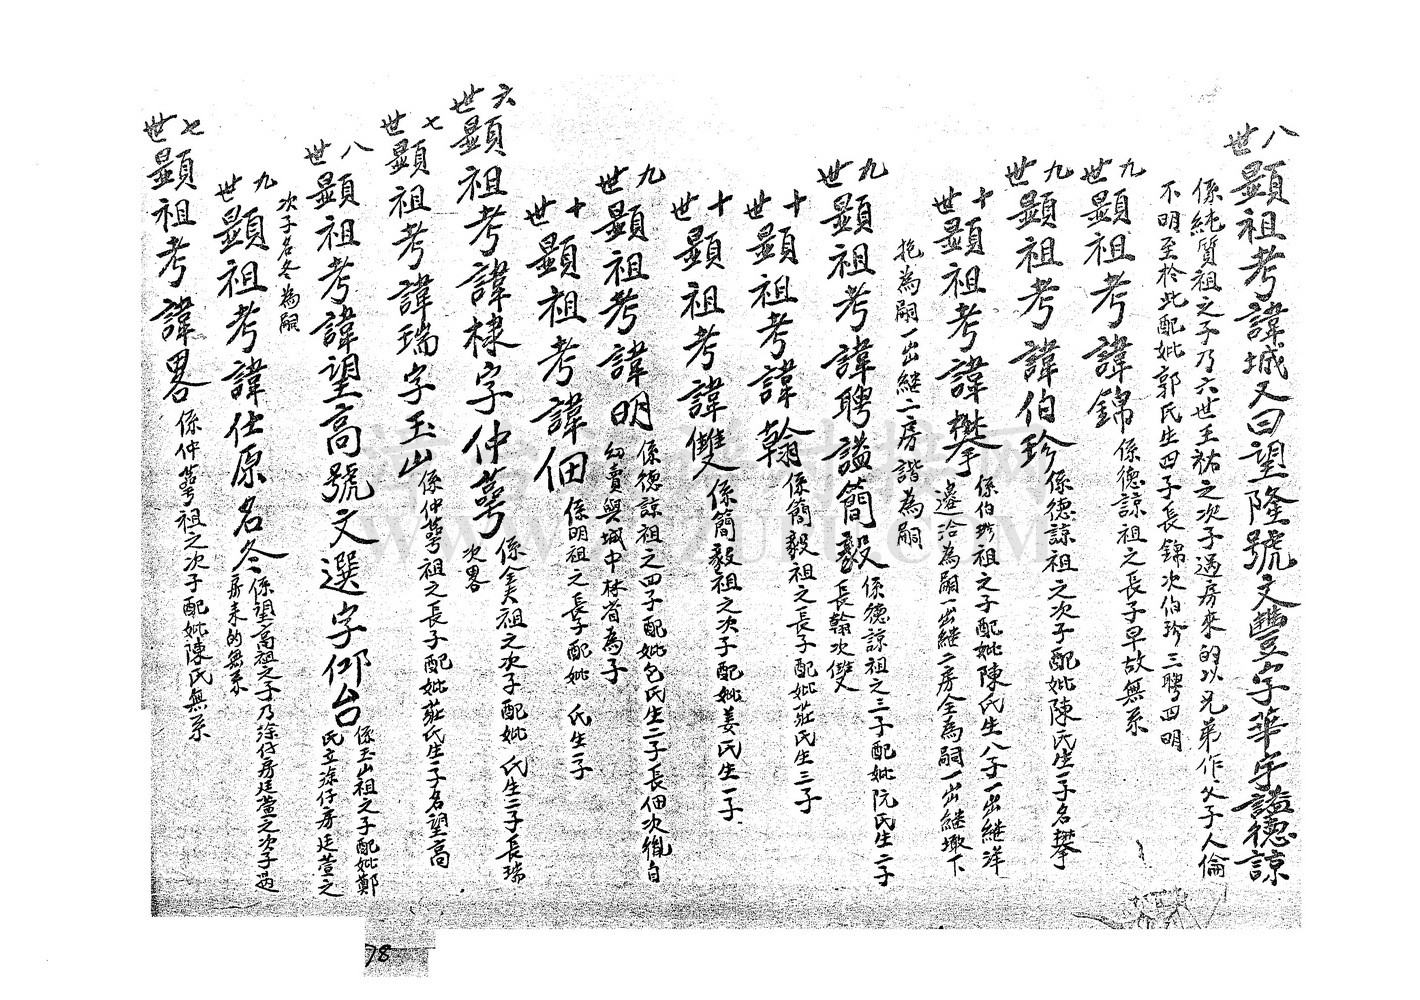 八世顯祖考諱城又曰望隆號文豐字華宇謚德諒
係純質祖之子乃六世玉祐之次子過房來的以兄弟作父子人倫
不明至於此配妣郭氏生四子長錦次伯珍三聘四明
九世顯祖考諱錦
係德諒祖之長子早故無系
九世顯祖考諱伯珍
係德諒祖之次子配妣陳氏生一子名攀
十世顯祖考諱攀
係伯珍祖之子配妣陳氏生八子一出継洋
邊洽為嗣一出継二房全為嗣一出継墩下
抱為嗣一出継二房諧為嗣
九世顯祖考諱聘謚簡毅
係德諒祖之三子配妣阮氏生二子
長翰次雙
十世顯祖考諱翰
係簡毅祖之長子配妣莊氏生三子
十世顯祖考諱雙
係簡毅祖之次子配妣姜氏生一子
九世顯祖考諱明
係德諒祖之四子配妣包氏生二子長佃次 自
幼賣與城中林省為子
十世顯祖考諱佃
係明祖之長子配妣 氏生一子
六世顯祖考諱棣字仲萼
係全美祖之次子配妣 氏生二子長瑞
次畧
七世顯祖考諱瑞字玉山
係仲萼祖之長子配妣莊氏生一子名望高
八世顯祖考諱望高號文選字仰台
係玉山祖之子配妣鄭
氏立添仔房廷萱之
次子名冬為嗣
九世顯祖考諱仕原名冬
係望高祖之子乃添仔房廷萱之次子過
房來的無系
七世顯祖考諱畧
係仲萼祖之次子配妣陳氏無系
78